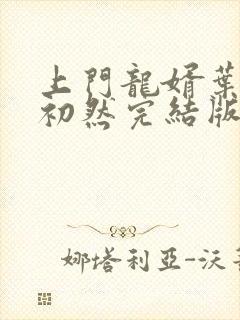 上門龍婿葉
初然完結版
娜塔利亞-沃